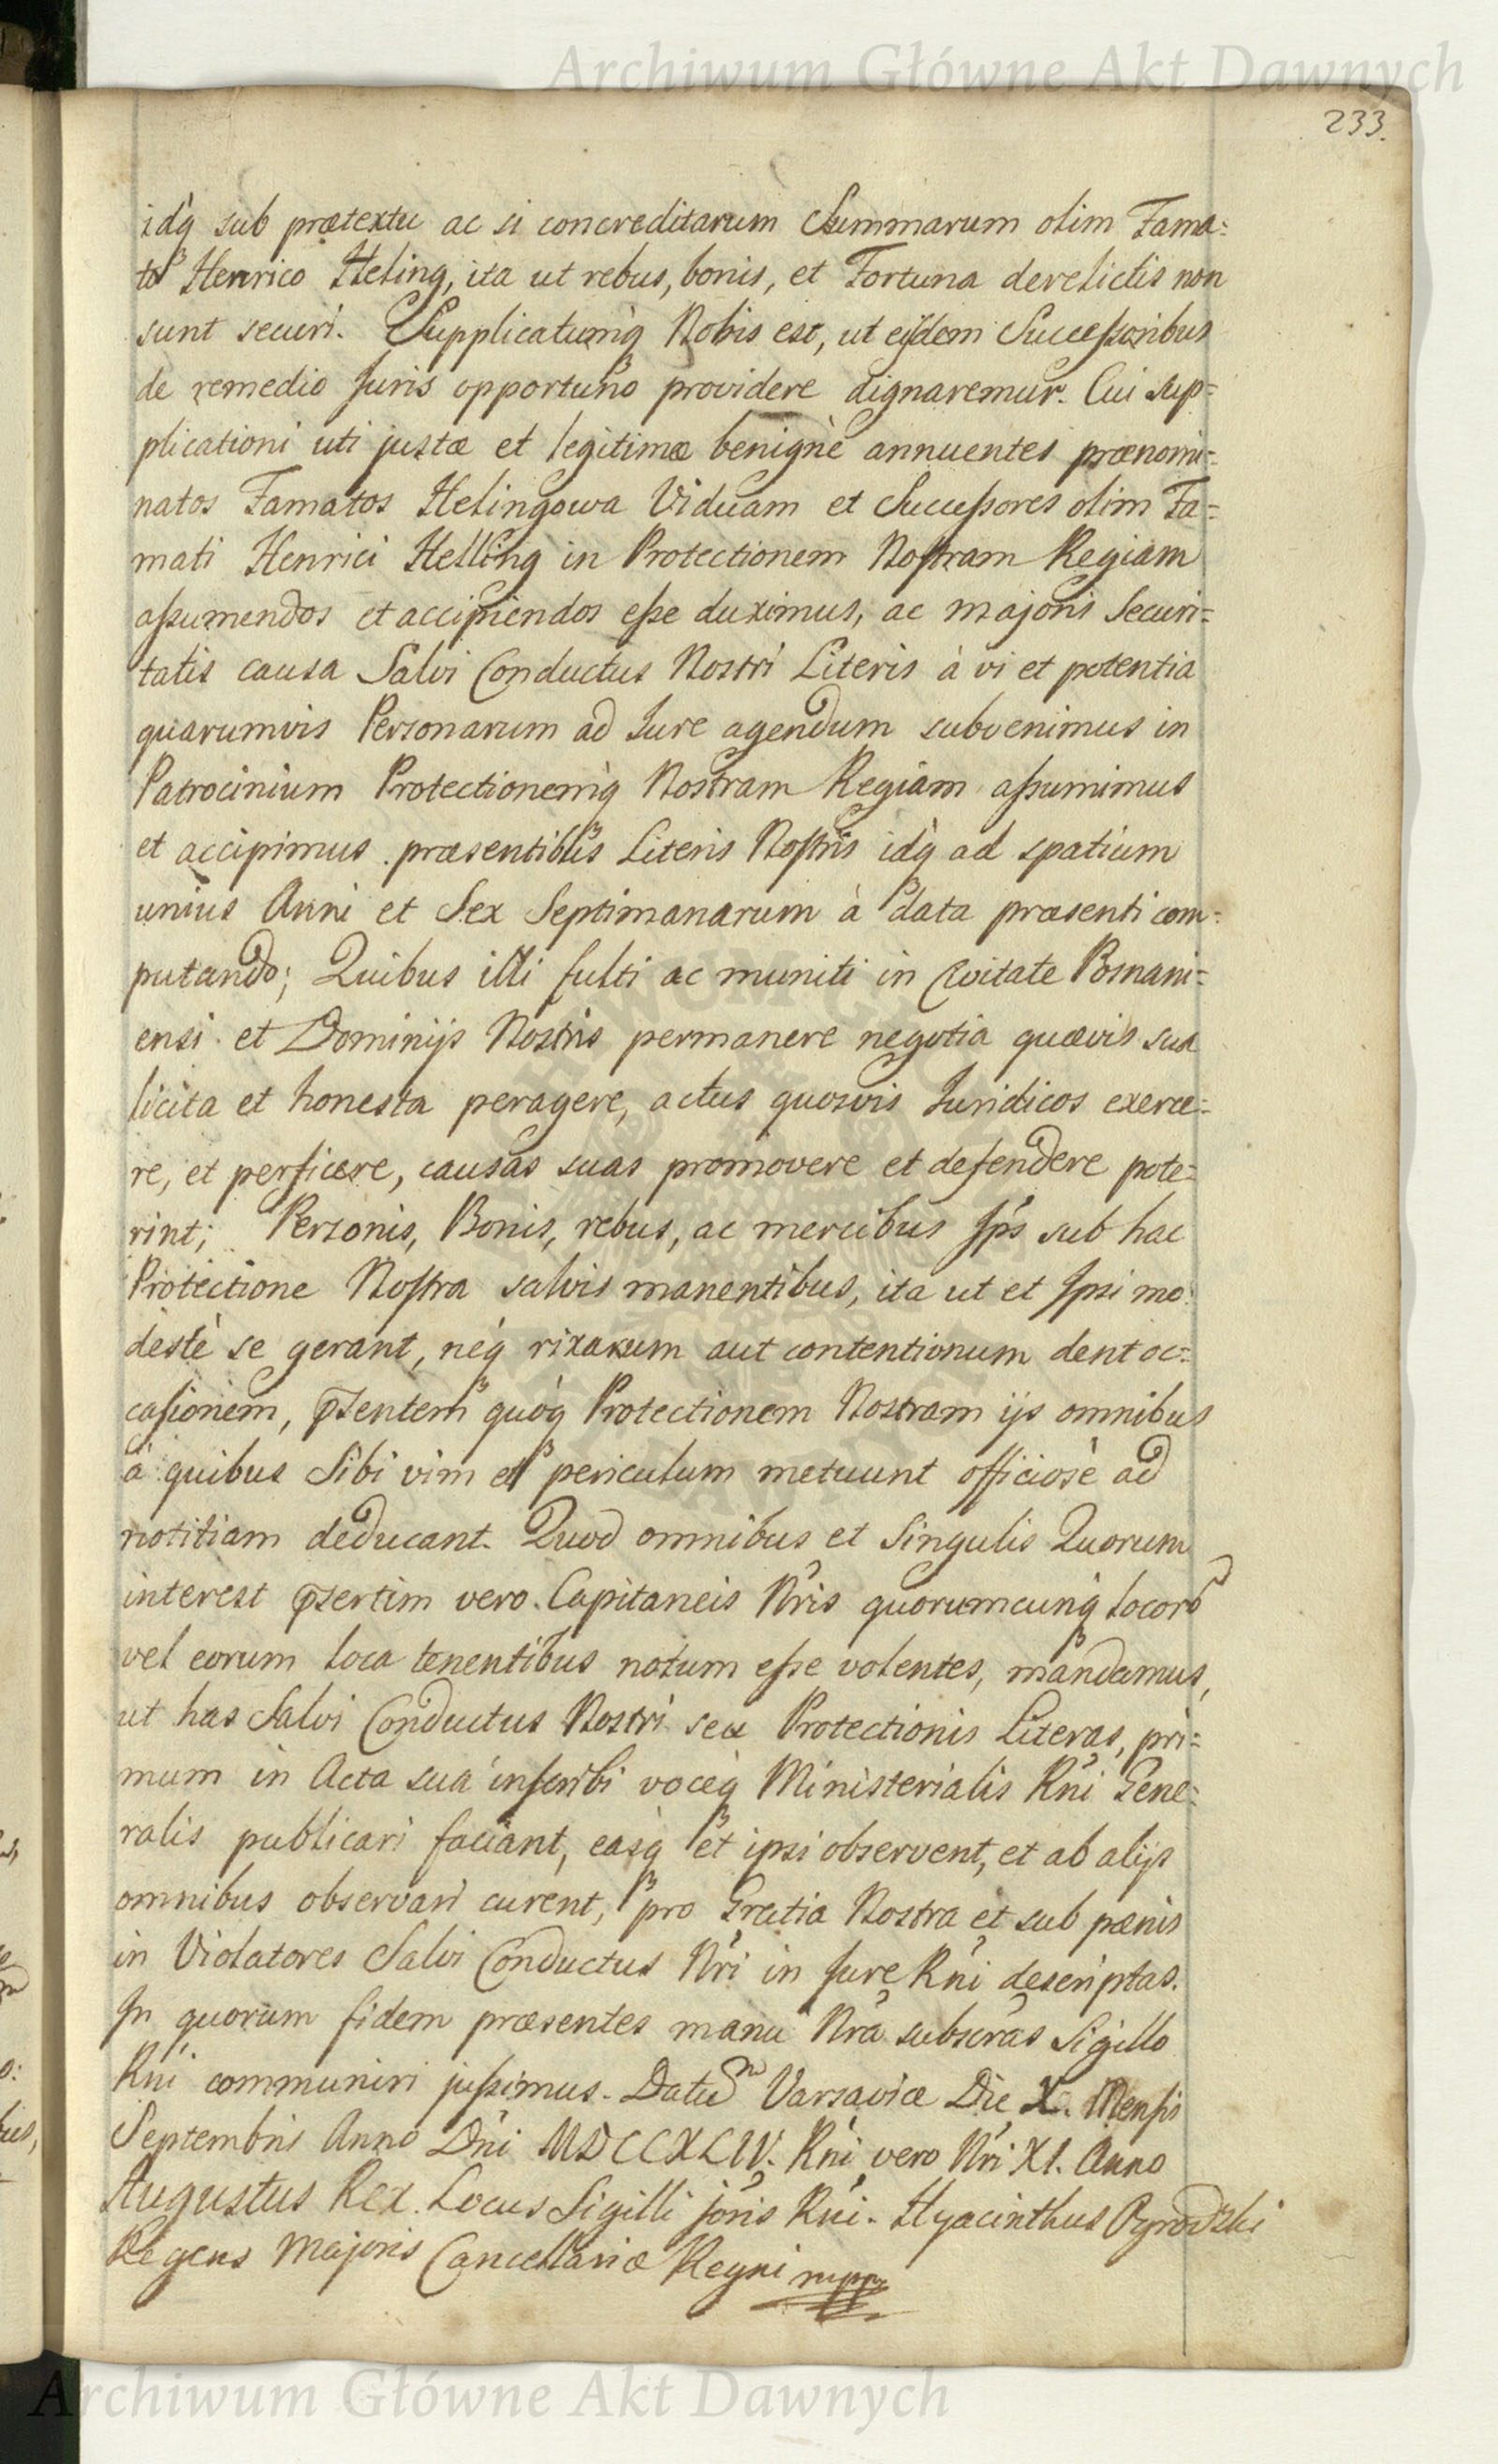 Archiwum Główne Akt Dawnych
233.
idq̀ sub prætextu ac si concreditarum Summarum olim Fama=
to Henrico Heling, ita ut rebus, bonis, et Fortuna derelictis non
sunt securi. Supplicatumq̀ Nobis est, ut ejsdem Successoribus
de remedio Juris opportuno providere dignaremur. Cui sup=
plicationi uti justæ et legitimæ benignè annuentes prænomi=
natos Famatos Helingowa Viduam et Successores olim Fa=
mati Henrici Helling in Protectionem Nostram Regiam
assumendos et accipiendos esse duximus, ac majoris Securi=
tatis causa Salvi Conductus Nostri Literis à vi et potentia
quarumvis Personarum ad Jure agendum subvenimus in
Patrocinium Protectionemq̀ Nostram Regiam assumimus
et accipimus præsentibus Literis Nostris idq̀ ad spatium
unius Anni et Sex Septimanarum à data præsenti com=
putando; Quibus illi fulti ac muniti in Civitate Posnani=
ensi et Dominijs Nostris permanere negotia quævis sua
licita et honesta peragere, actus quosvis Juridicos exerce=
re, et perficere, causas suas promovere et defendere pote=
rint; Personis, Bonis, rebus, ac mercibus Jps̀ sub hac
Protectione Nostra salvis manentibus, ita ut et Jpsi mo
destè se gerant, neq̀ rixarum aut contentionum dent oc=
casionem, p̃sentem quoq̀ Protectionem Nostram ijs omnibus
à quibus Sibi vim et periculum metuunt officiosè ad
notitiam deducant. Quod omnibus et Singulis Quorum
interest p̃sertim vero Capitaneis Nris quorumcunq̀ locorũ
vel eorum loca tenentibus notum esse volentes, mandamus,
ut has Salvi Conductus Nostri seu Protectionis Literas, pri=
mum in Acta sua inscribi voceq̀ Ministerialis Rñi Gene=
ralis publicari faciant, easq̀ et ipsi observent, et ab alijs
omnibus observari curent, pro Gratia Nostra et sub pænis
in Violatores Salvi Conductus Nri in Jure Rñi descriptas.
Jn quorum fidem præsentes manu Nra subscras Sigillo
Rñi communiri jussimus. Datum Varsaviæ Die X. Mensis
Septembris Anno Dñi MDCCXLIV. Rñi vero Nri XI. Anno
Augustus Rex. Locus Sigilli joris Rñi. Hyacinthus Ogrodzki
Regens Majoris Cancellariæ Regni mpp
Archiwum Główne Akt Dawnych